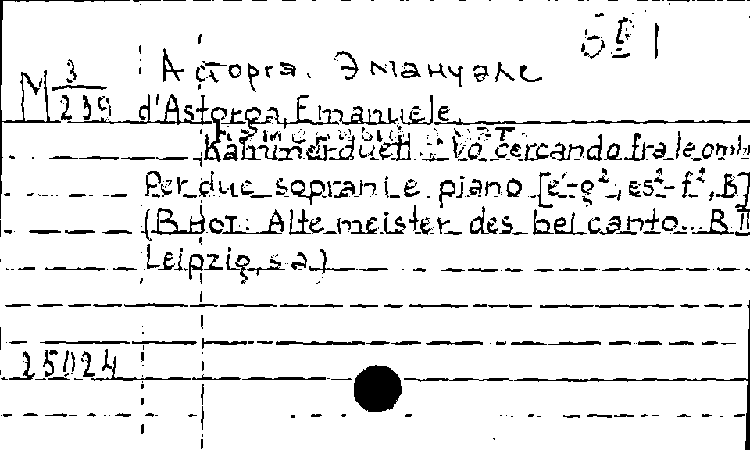 М 3/239
Асторга. Эмануэле
d'Astorga, Emanuele.
Kammerduett: Vo cercando fra le ombr
Per due soprani e piano [e'-g², es²-f², B]
(В нот: Alte meister des bel canto.. B II
Leipzig, s a.)
25024